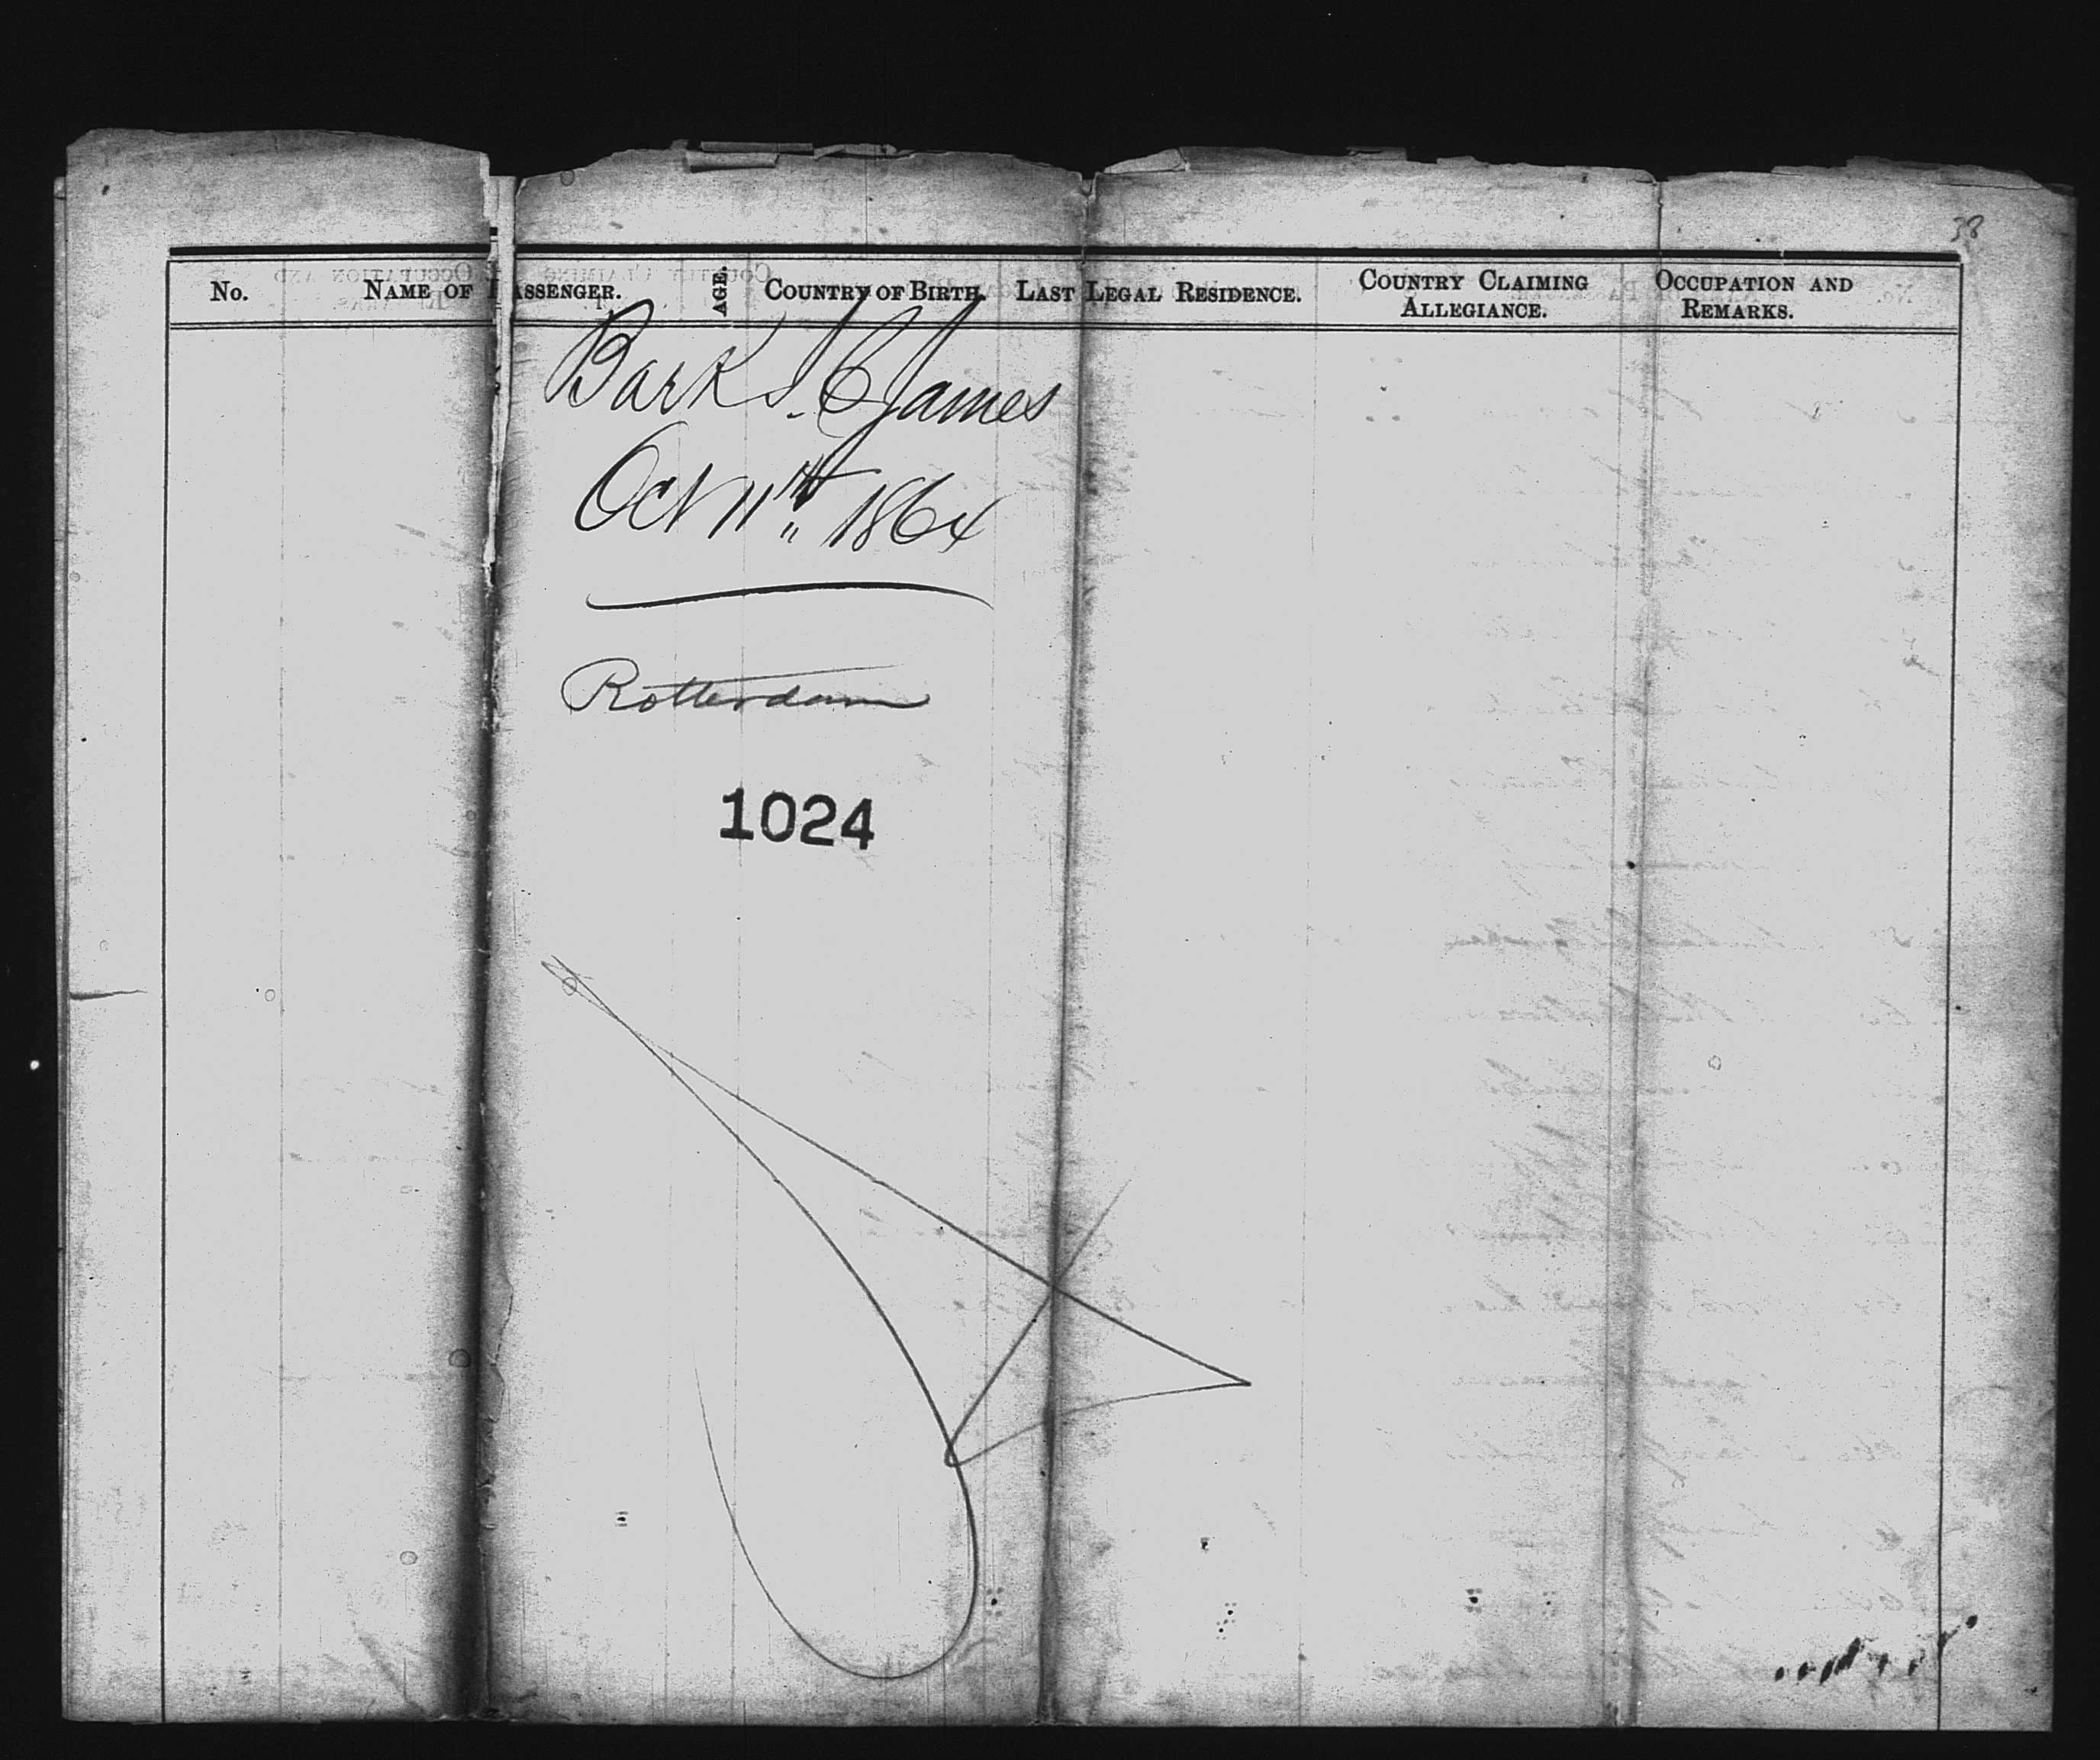 38
No. NAME OF PASSENGER. AGE. COUNTRY OF BIRTH. LAST LEGAL RESIDENCE. COUNTRY CLAIMING ALLEGIANCE. OCCUPATION AND REMARKS.
Bark J. C. James
Oct 11th 1864
Rotterdam
1024